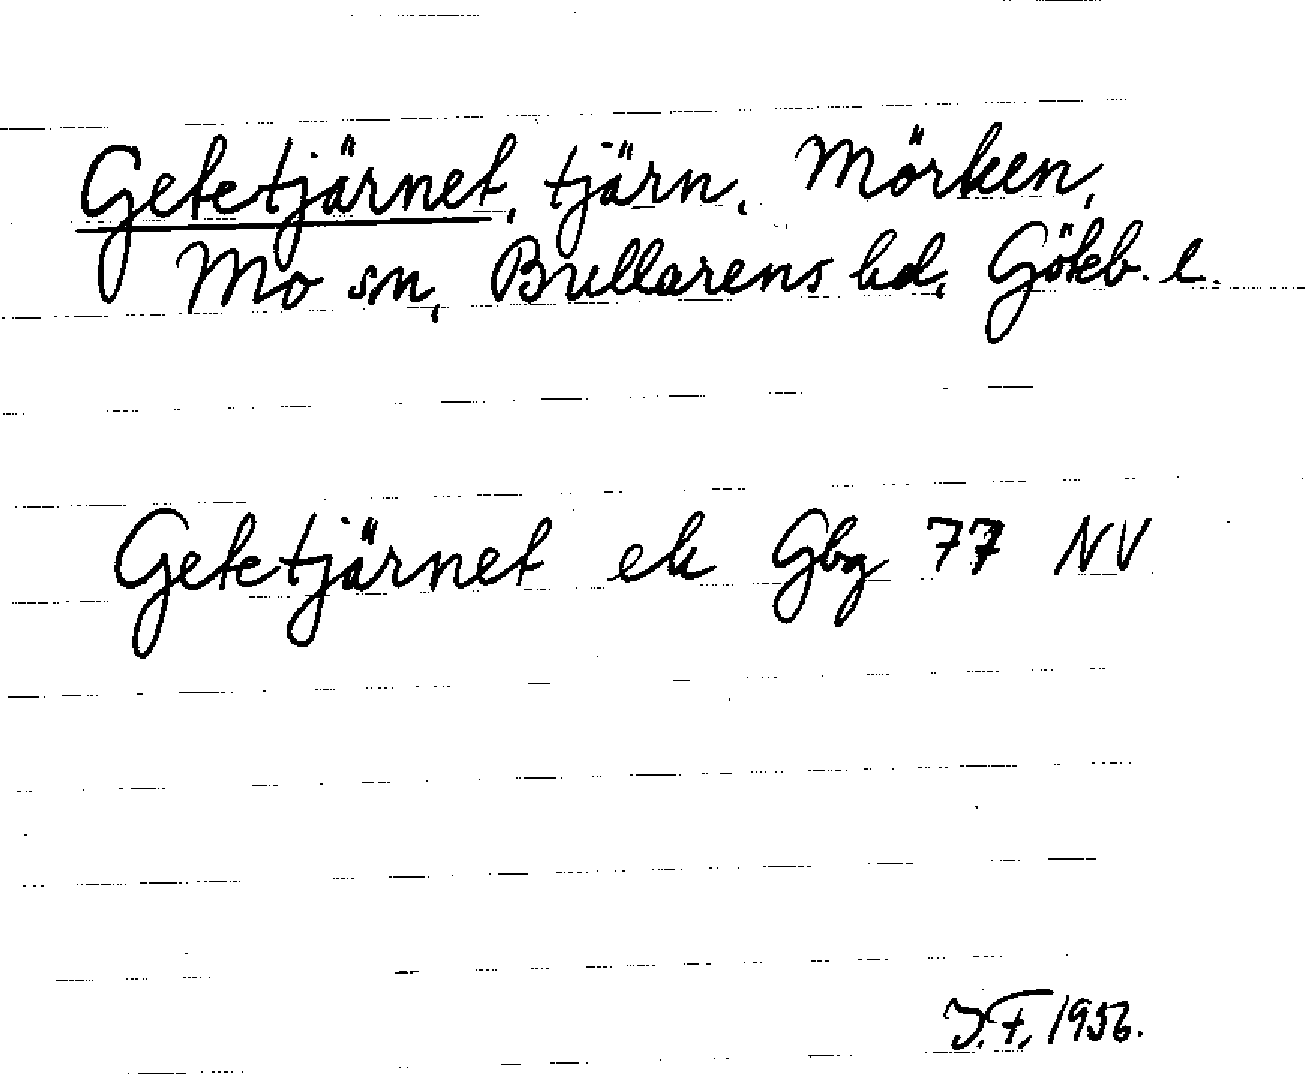 Getetjärnet, tjärn, Mörken,
Mo sn, Bullarens hd, Göteb. l.
Getetjärnet ek Gbg 77 NV
J.F. 1956.